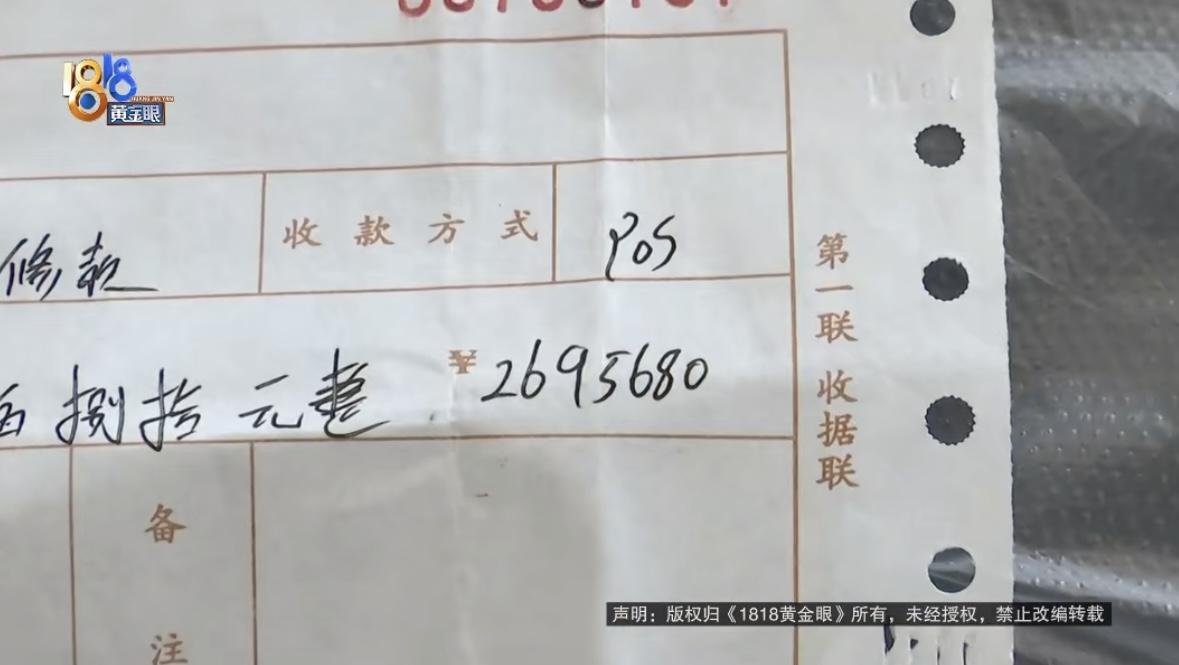 1818
黄金眼
收款方式 POS
修款
捌拾元整 ¥2695680
第一联 收据联
备注
声明：版权归《1818黄金眼》所有，未经授权，禁止改编转载